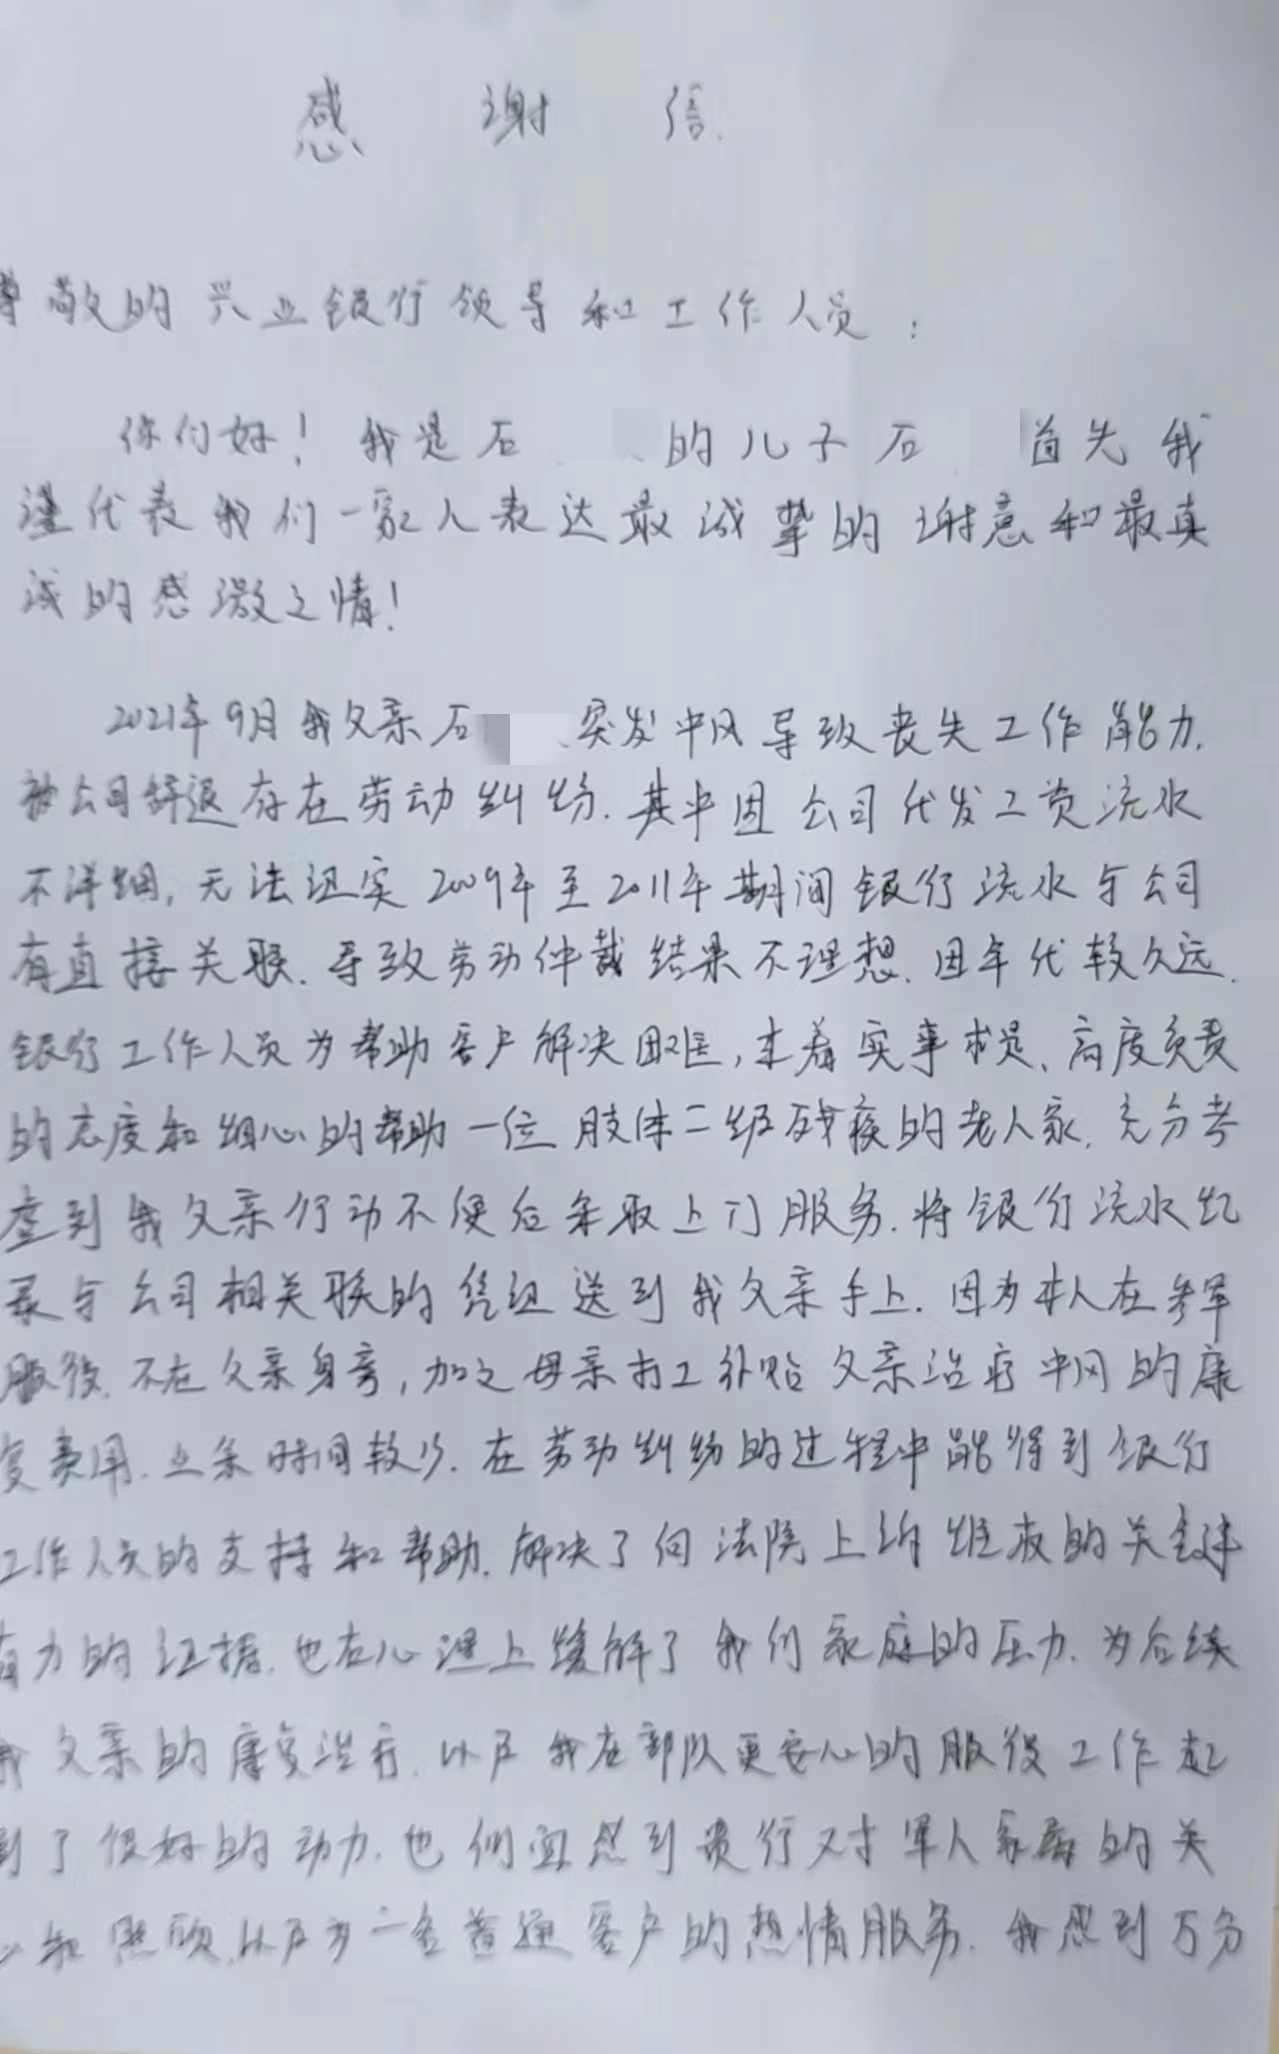 感谢信
尊敬的兴业银行领导和工作人员:
你们好!我是石 的儿子石 首先我
谨代表我们一家人表达最诚挚的谢意和最真
诚的感激之情!
2021年9月我父亲石 突发中风导致丧失工作能力.
被公司辞退存在劳动纠纷.其中因公司代发工资流水
不详细,无法证实2009年至2011年期间银行流水与公司
有直接关联.导致劳动仲裁结果不理想.因年代较久远.
银行工作人员为帮助客户解决困难,本着实事求是、高度负责
的态度和细心的帮助一位肢体二级残疾的老人家.充分考
虑到我父亲行动不便后采取上门服务.将银行流水纪
录与公司相关联的凭证送到我父亲手上.因为本人在参军
服役.不在父亲身旁,加之母亲打工补贴父亲治疗中风的康
复费用.业余时间较少.在劳动纠纷的过程中能得到银行
工作人员的支持和帮助.解决了向法院上诉维权的关键
有力的证据.也在心理上缓解了我们家庭的压力.为后续
我父亲的康复治疗.以及我在部队更安心的服役工作起
到了很好的动力.也侧面感到贵行对军人家属的关
心和照顾.以及为一名普通客户的热情服务.我感到万分